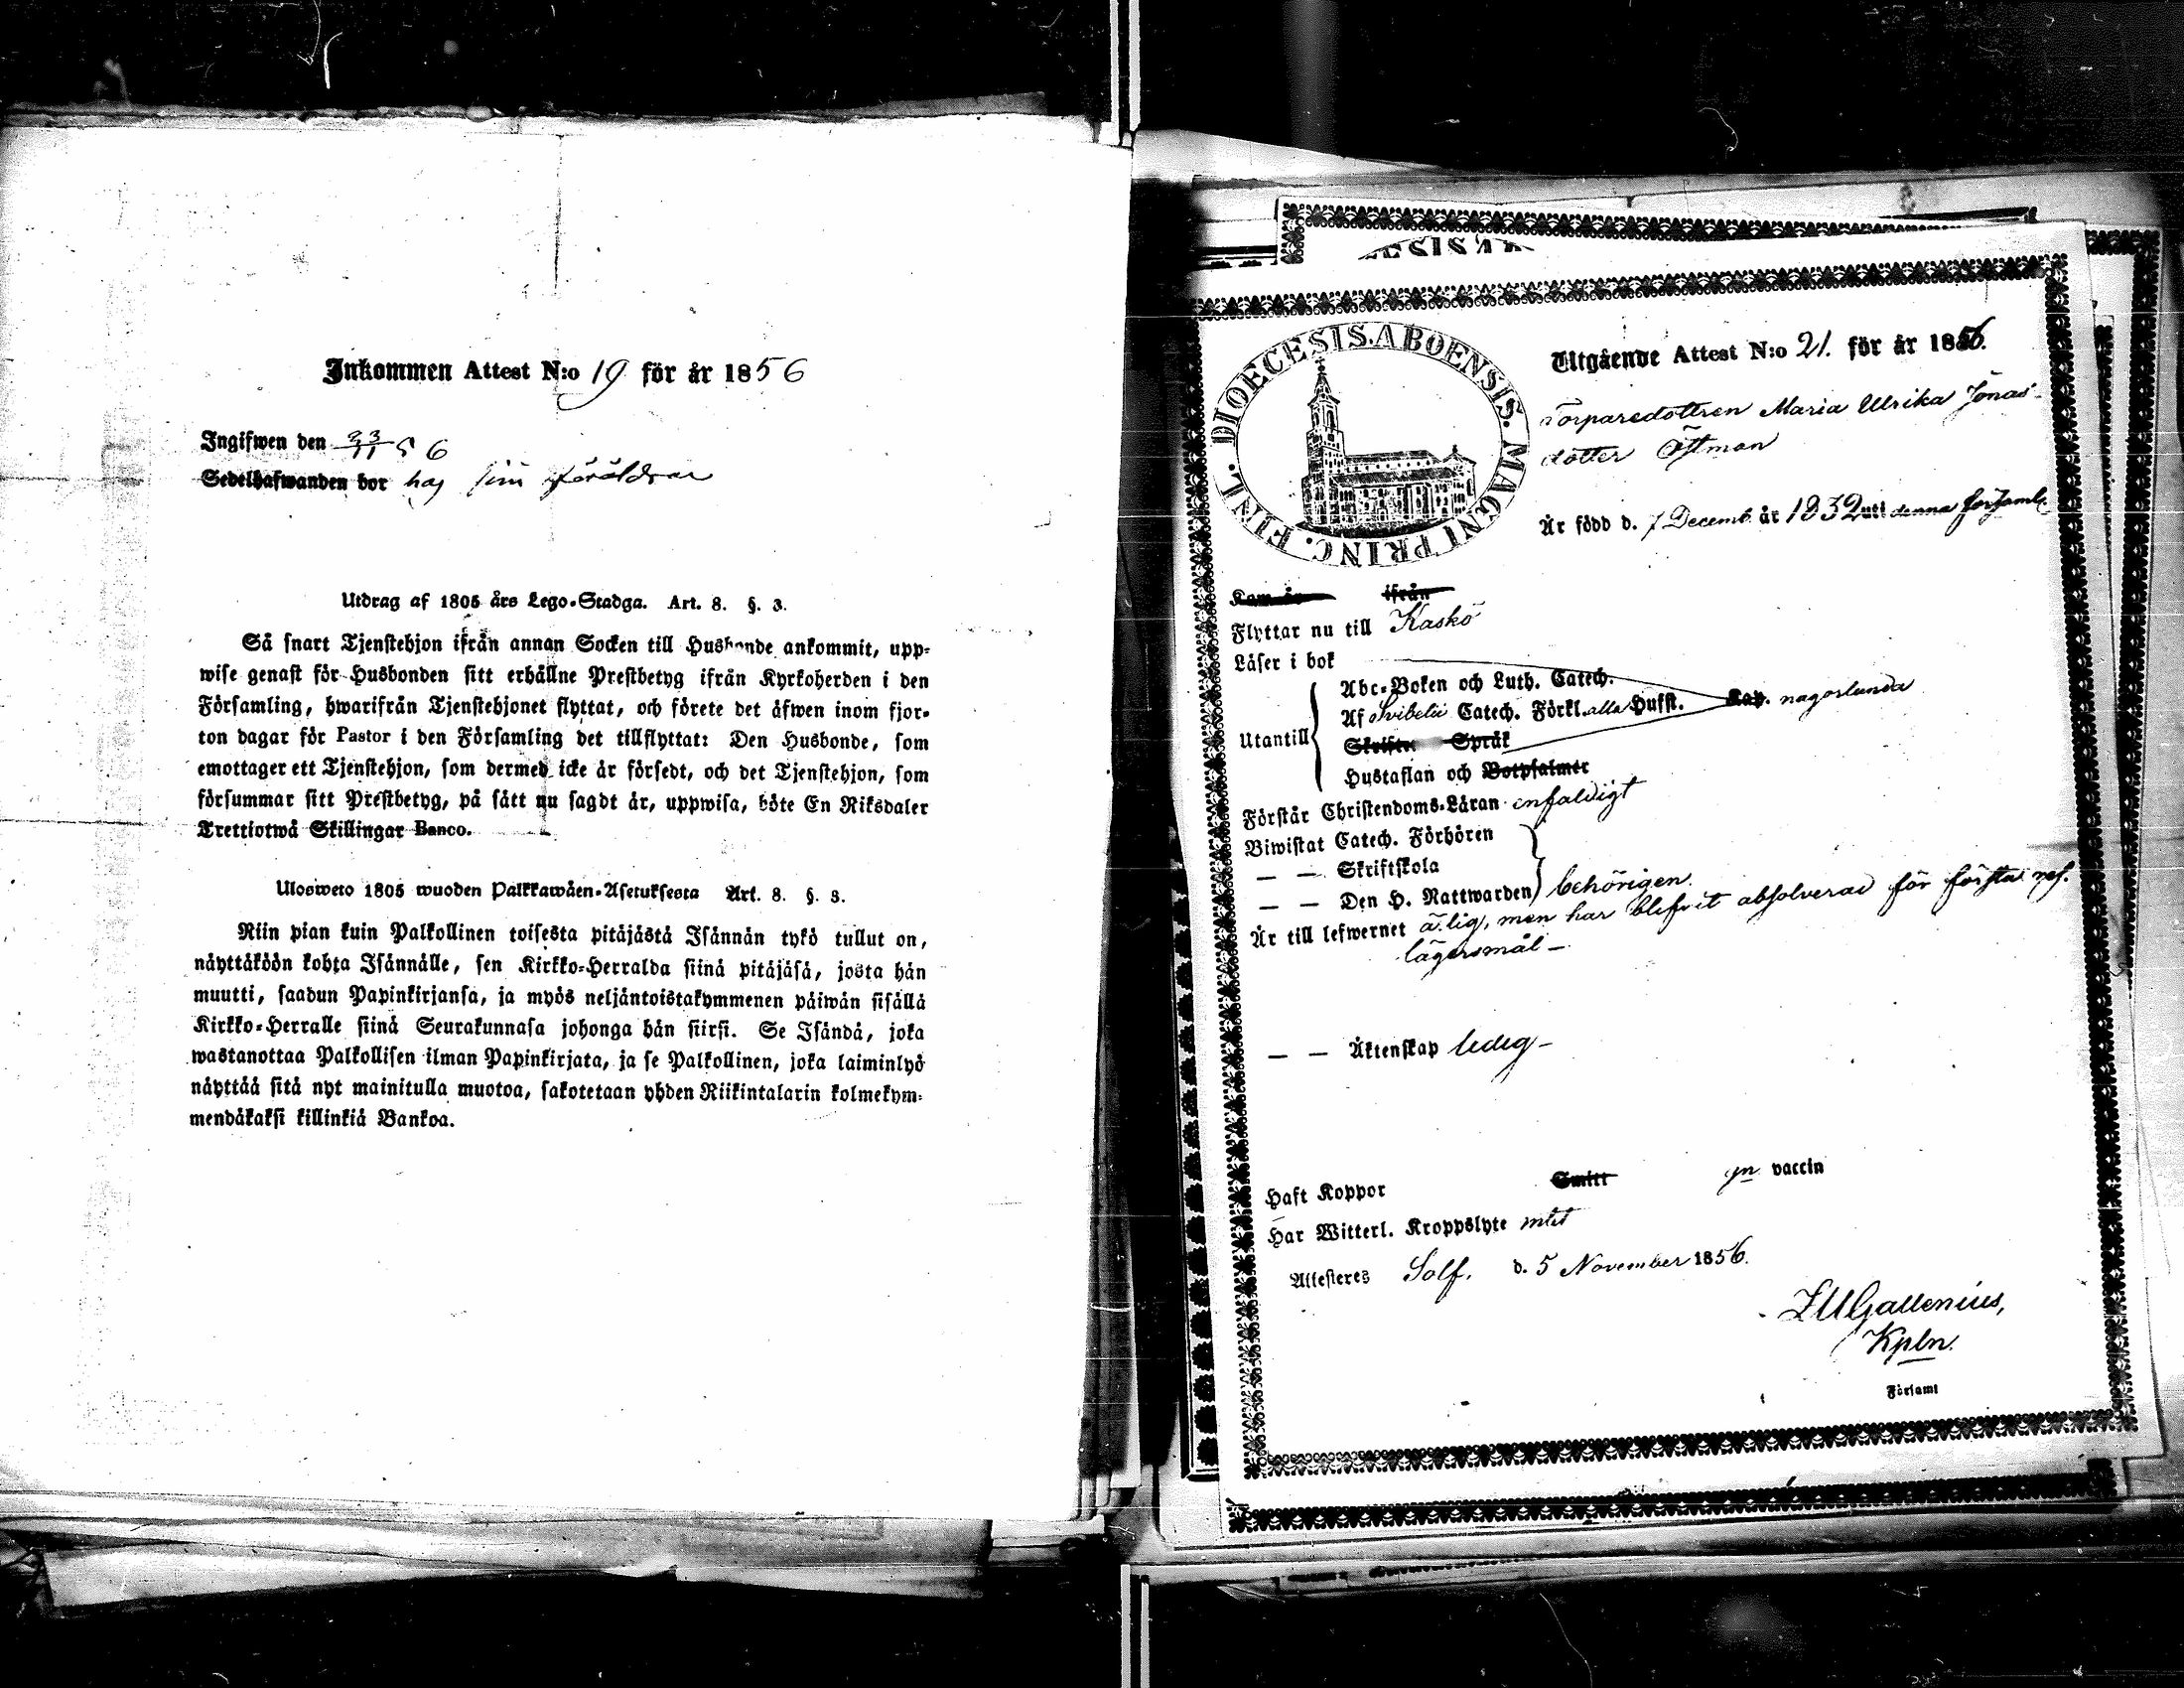 Inkommen Attest N:o 19 för år 1856
Ingifwen den 23/11 56
Sedelhafwanden bor hos sin föräldrar
Utdrag af 1805 års Lego-Stadga. Art. 8. §. 3.
Så snart Tjenstehjon ifrån annan Socken till Husbonde ankommit, upp-
wise genast för Husbonden sitt erhållne Prestbetyg ifrån Kyrkoherden i den
Församling, hwarifrån Tjenstehjonet flyttat, och förete det äfwen inom fjor-
ton dagar för Pastor i den Församling det tillflyttat: Den Husbonde, som
emottager ett Tjenstehjon, som dermed icke är försedt, och det Tjenstehjon, som
försummar sitt Prestbetyg, på sätt nu sagdt är, uppwisa, böte En Riksdaler
Trettiotwå Skillingar Banco.
Ulosweto 1805 wuoden Palkkawäen-Asetuksesta Art. 8. §. 3.
Niin pian kuin Palkollinen toisesta pitäjästä Isännän tykö tullut on,
näyttäköön kohta Isännälle, sen Kirkko-Herralda siinä pitäjäsä, josta hän
muutti, saadun Papinkirjansa, ja myös neljäntoistakymmenen päiwän sisällä
Kirkko-Herralle siinä Seurakunnasa johonga hän siirsi. Se Isändä, joka
wastanottaa Palkollisen ilman Papinkirjata, ja se Palkollinen, joka laiminlyö
näyttää sitä nyt mainitulla muotoa, sakotetaan yhden Riikintalarin kolmekym-
mendäkaksi killinkiä Bankoa.
DIOECESIS. ABOENSIS. MAGNI PRINC. FINL.
Utgående Attest N:o 21. för år 1856.
Torparedottren Maria Ulrika Jonas-
dotter Östman
Är född d. 7 Decemb. år 1832 uti denna förssaml.
Kom år ifrån
Flyttar nu till Kaskö
Läser i bok
Abc-Boken och Luth. Catech.
Af Svibelii Catech. Förkl. alla Hufst. Kap. någorlunda
Utantill
Skriftens Språk
Hustaflan och Botpsalmer
Förstår Christendoms-Läran enfaldigt
Biwistat Catech. Förhören
— — Skriftskola
— — Den H. Nattwarden behörigen.
Är till lefwernet ärlig, men har blifvit absolverad för första res.
lägersmål —
— — Äktenskap ledig —
Haft Koppor Smitt gn vaccin
Har Witterl. Kroppslyte intet
Attesteres Solf. d. 5 November 1856.
Gallenius,
Kpln.
Församl